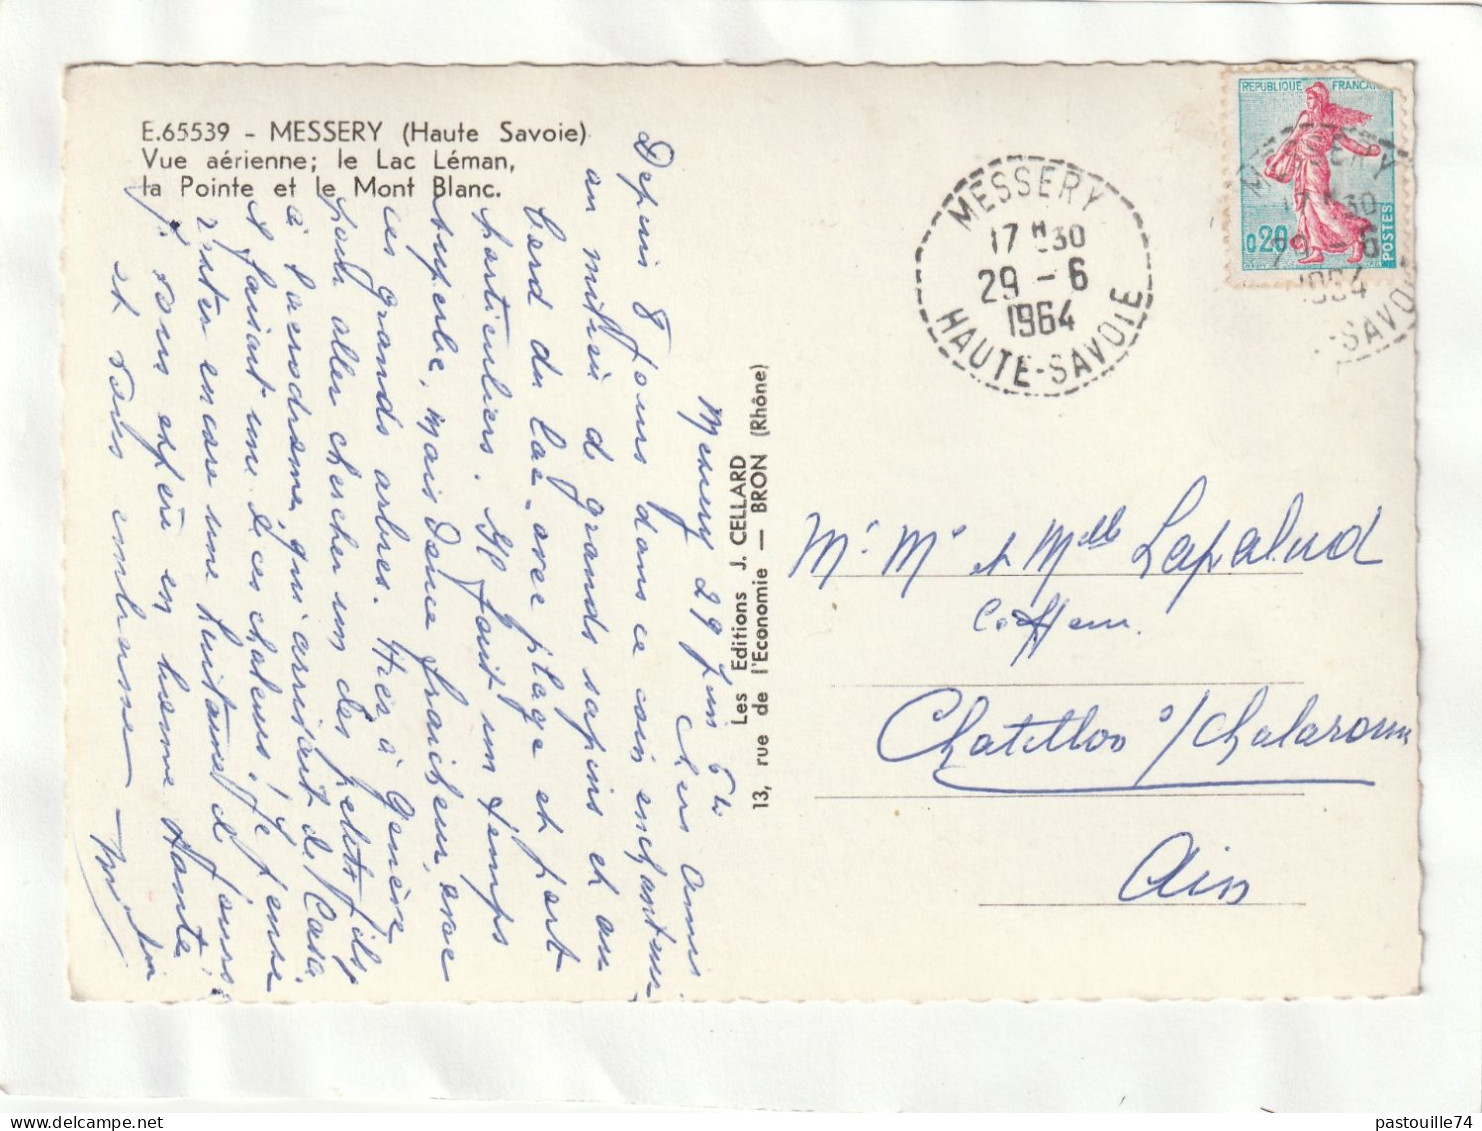 E.65539 - MESSERY (Haute Savoie)
Vue aérienne; le Lac Léman,
la Pointe et le Mont Blanc.
Messery 29 Juin 64
Chers Amis
Depuis 8 jours dans ce coin enchanteur
au milieu de grands sapins et au
bord du lac, avec plage et port
particuliers. Il fait un temps
superbe, mais douce fraicheur, avec
ces grands arbres. Hier à Genève
pour aller chercher un des petits fils
à l'aérodrome, qui arrivait de Casa
et faisait une de ces chaleurs! Je pense
rester encore une huitaine de jours
Je vous espère en bonne santé
et vous embrasse
Les Editions J. CELLARD
13, rue de l'Economie — BRON (Rhône)
REPUBLIQUE FRANCAI
0,20
POSTES
MESSERY
17 H 30
29 - 6
1964
HAUTE-SAVOIE
MESSERY
17 H 30
29 - 6
1964
-SAVO
Mr. Me et Melle Lapalud
Coiffeur.
Chatillon s/Chalaronne
Ain
pastouille74